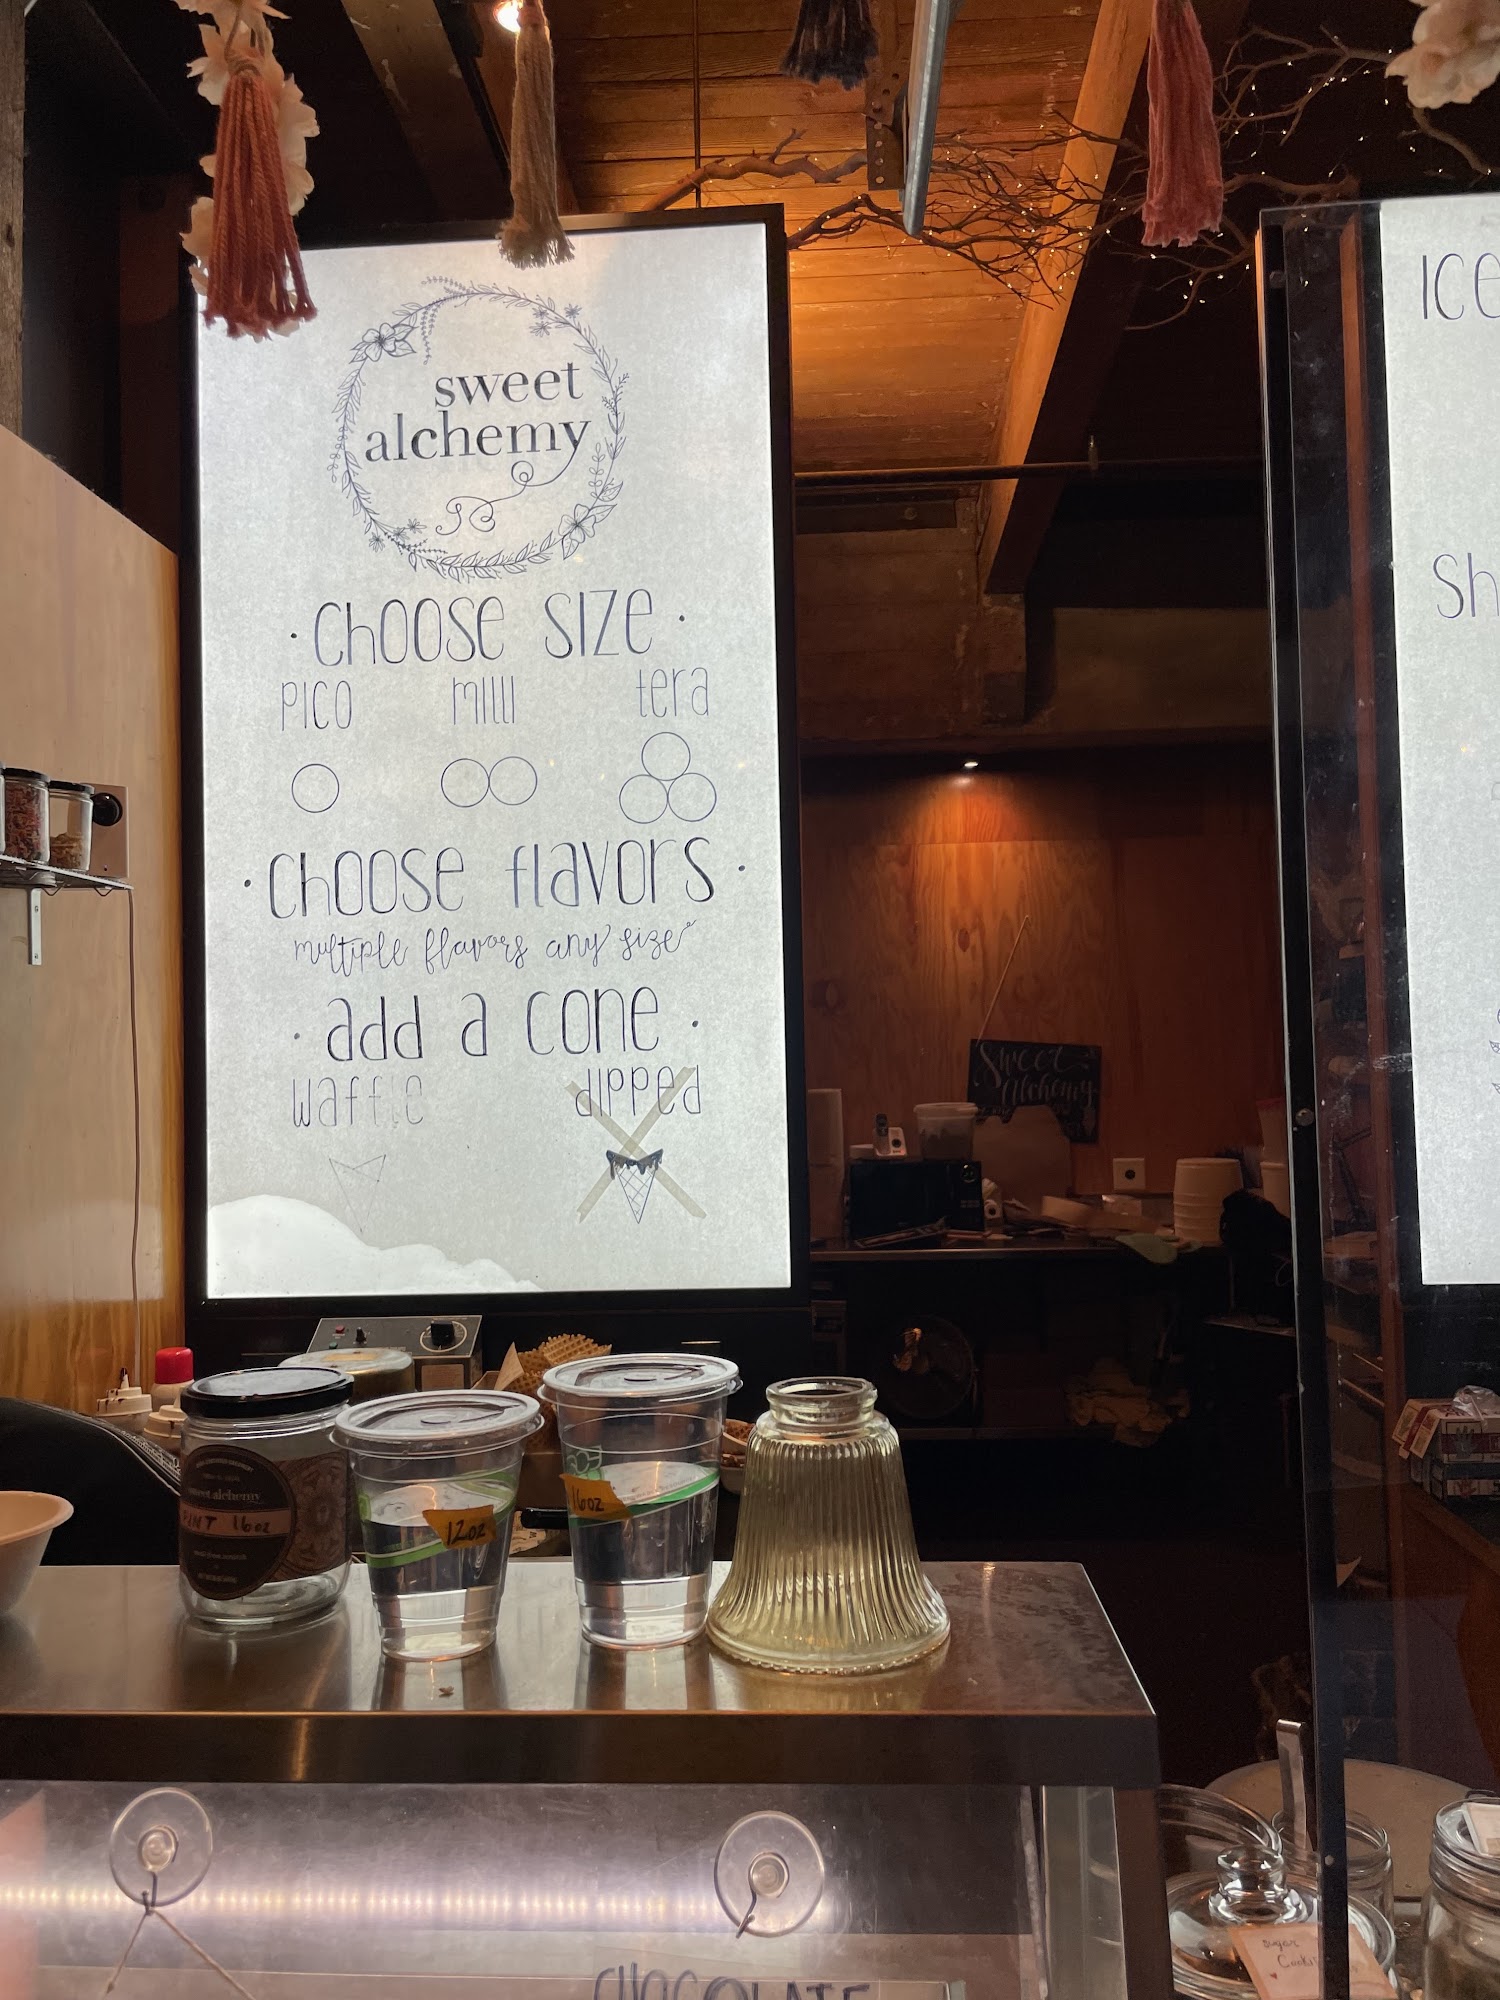 sweet
alchemy
choose size
pico milli tera
choose flavors
multiple flavors any size
add a cone
waffle dipped
Sweet
Alchemy
sweet alchemy
PINT 16oz
12oz
16oz
sugar
Cookie
CHOCOLATE